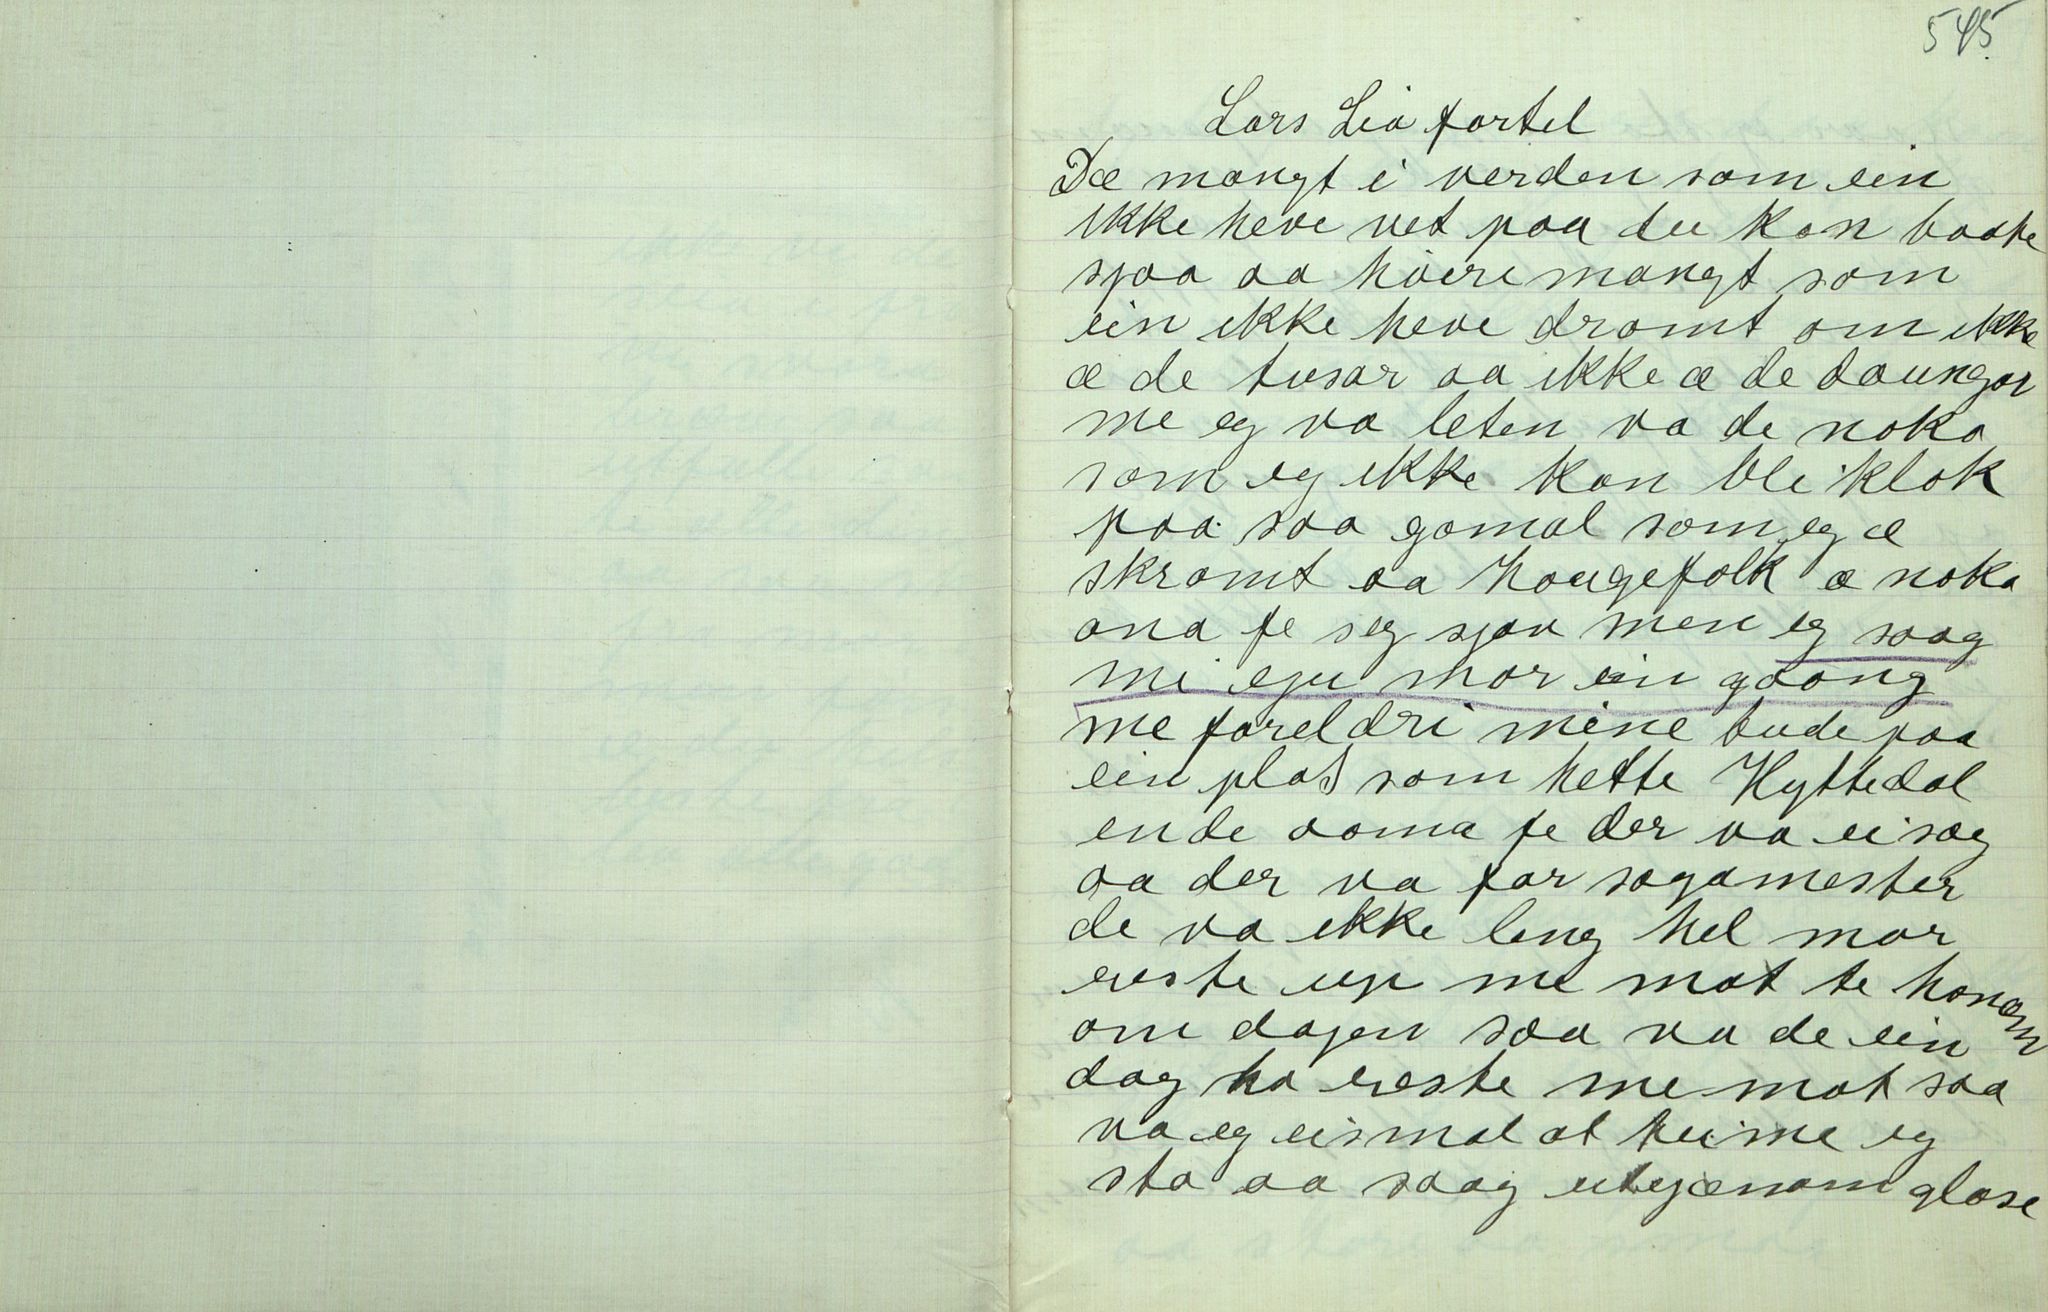 545
Lars Lia fortel
Dæ mangt i verden som ein
ikke heve vet paa du kan baate
sjaa aa høire mangt som
ein ikke heve drømt om ikke
æ de tusar aa ikke æ de daungar
me eg va leten va de noka
som eg ikke kan bli klok
paa saa gamal som eg æ
skrømt aa hougefolk æ noka
ana fe seg sjøv men eg saag
mi egu mor ein gaang
me foreldri mine bude paa
ein plas som hette Hyttedal
ende aoma fe der va ei sag
aa der va far sagamester
de va ikke leng hel mor
reiste up me mat te honom
om dagen saa va de ein
dag ho reiste me mat saa
va eg eismal at heime eg
sto aa saag utgjænom glase